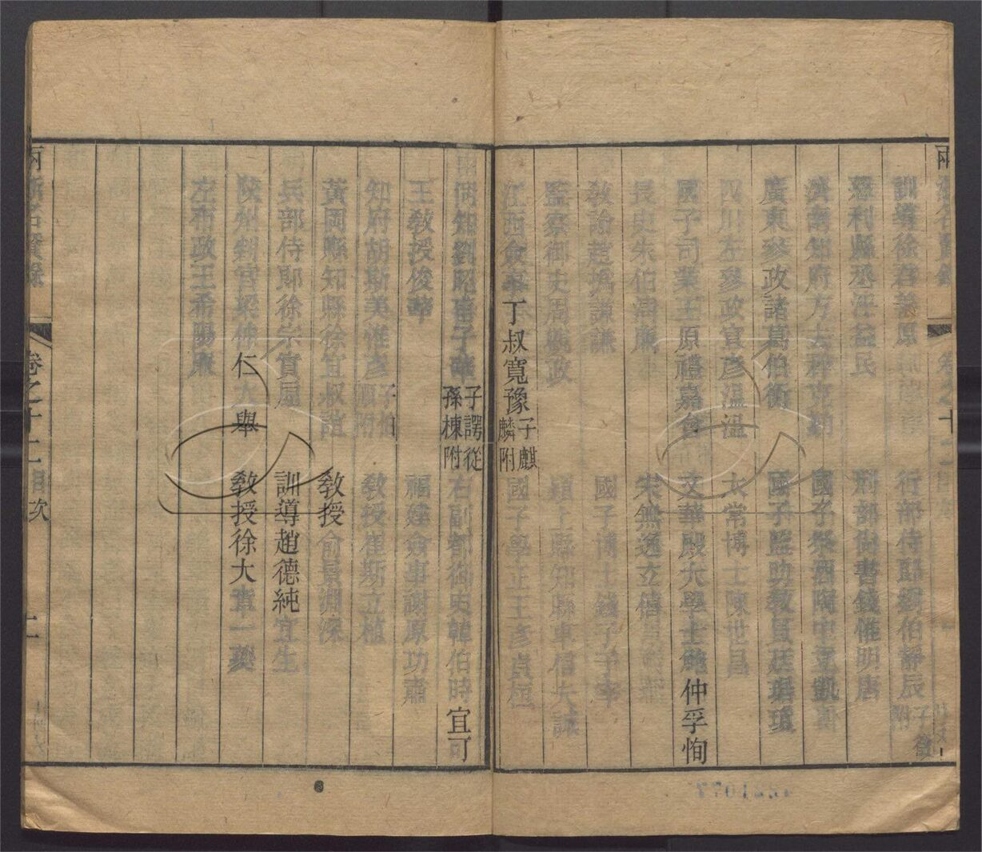 兩浙名賢錄 卷之十二
訓導徐存義原 行部侍郎劉伯靜辰 附
慈利縣丞汪益民 刑部尚書錢惟明唐
濟南知府方去矜克勤 國子祭酒陶中立凱
廣東參政諸葛伯衡 國子監助教貝廷琚瓊
四川左參政官彥溫溫 太常博士陳世昌
國子司業王原禮嘉會 文華殿大學士鮑仲孚恂
長史朱伯清廉 宋無逸立僖
教諭趙撝謙謙 國子博士錢子予宰
監察御史周觀政 潁上縣知縣車信夫誠
江西僉事丁叔寬豫子麒麟附 國子學正王彥貞桓
同知劉昭甫子謂從孫棟附 右副都御史韓伯時宜可
王教授俊華 福建僉事謝原功肅
知府胡斯美惟彥子伯順附 教授崔斯立植
黃岡縣知縣徐宜叔誼 教授俞景淵深
兵部侍郎徐宗實垕 訓導趙德純宜生
陝州判官梁仲仁大舉 教授徐大章一夔
左布政王希暘
兩浙名賢錄 卷之十二目次 二